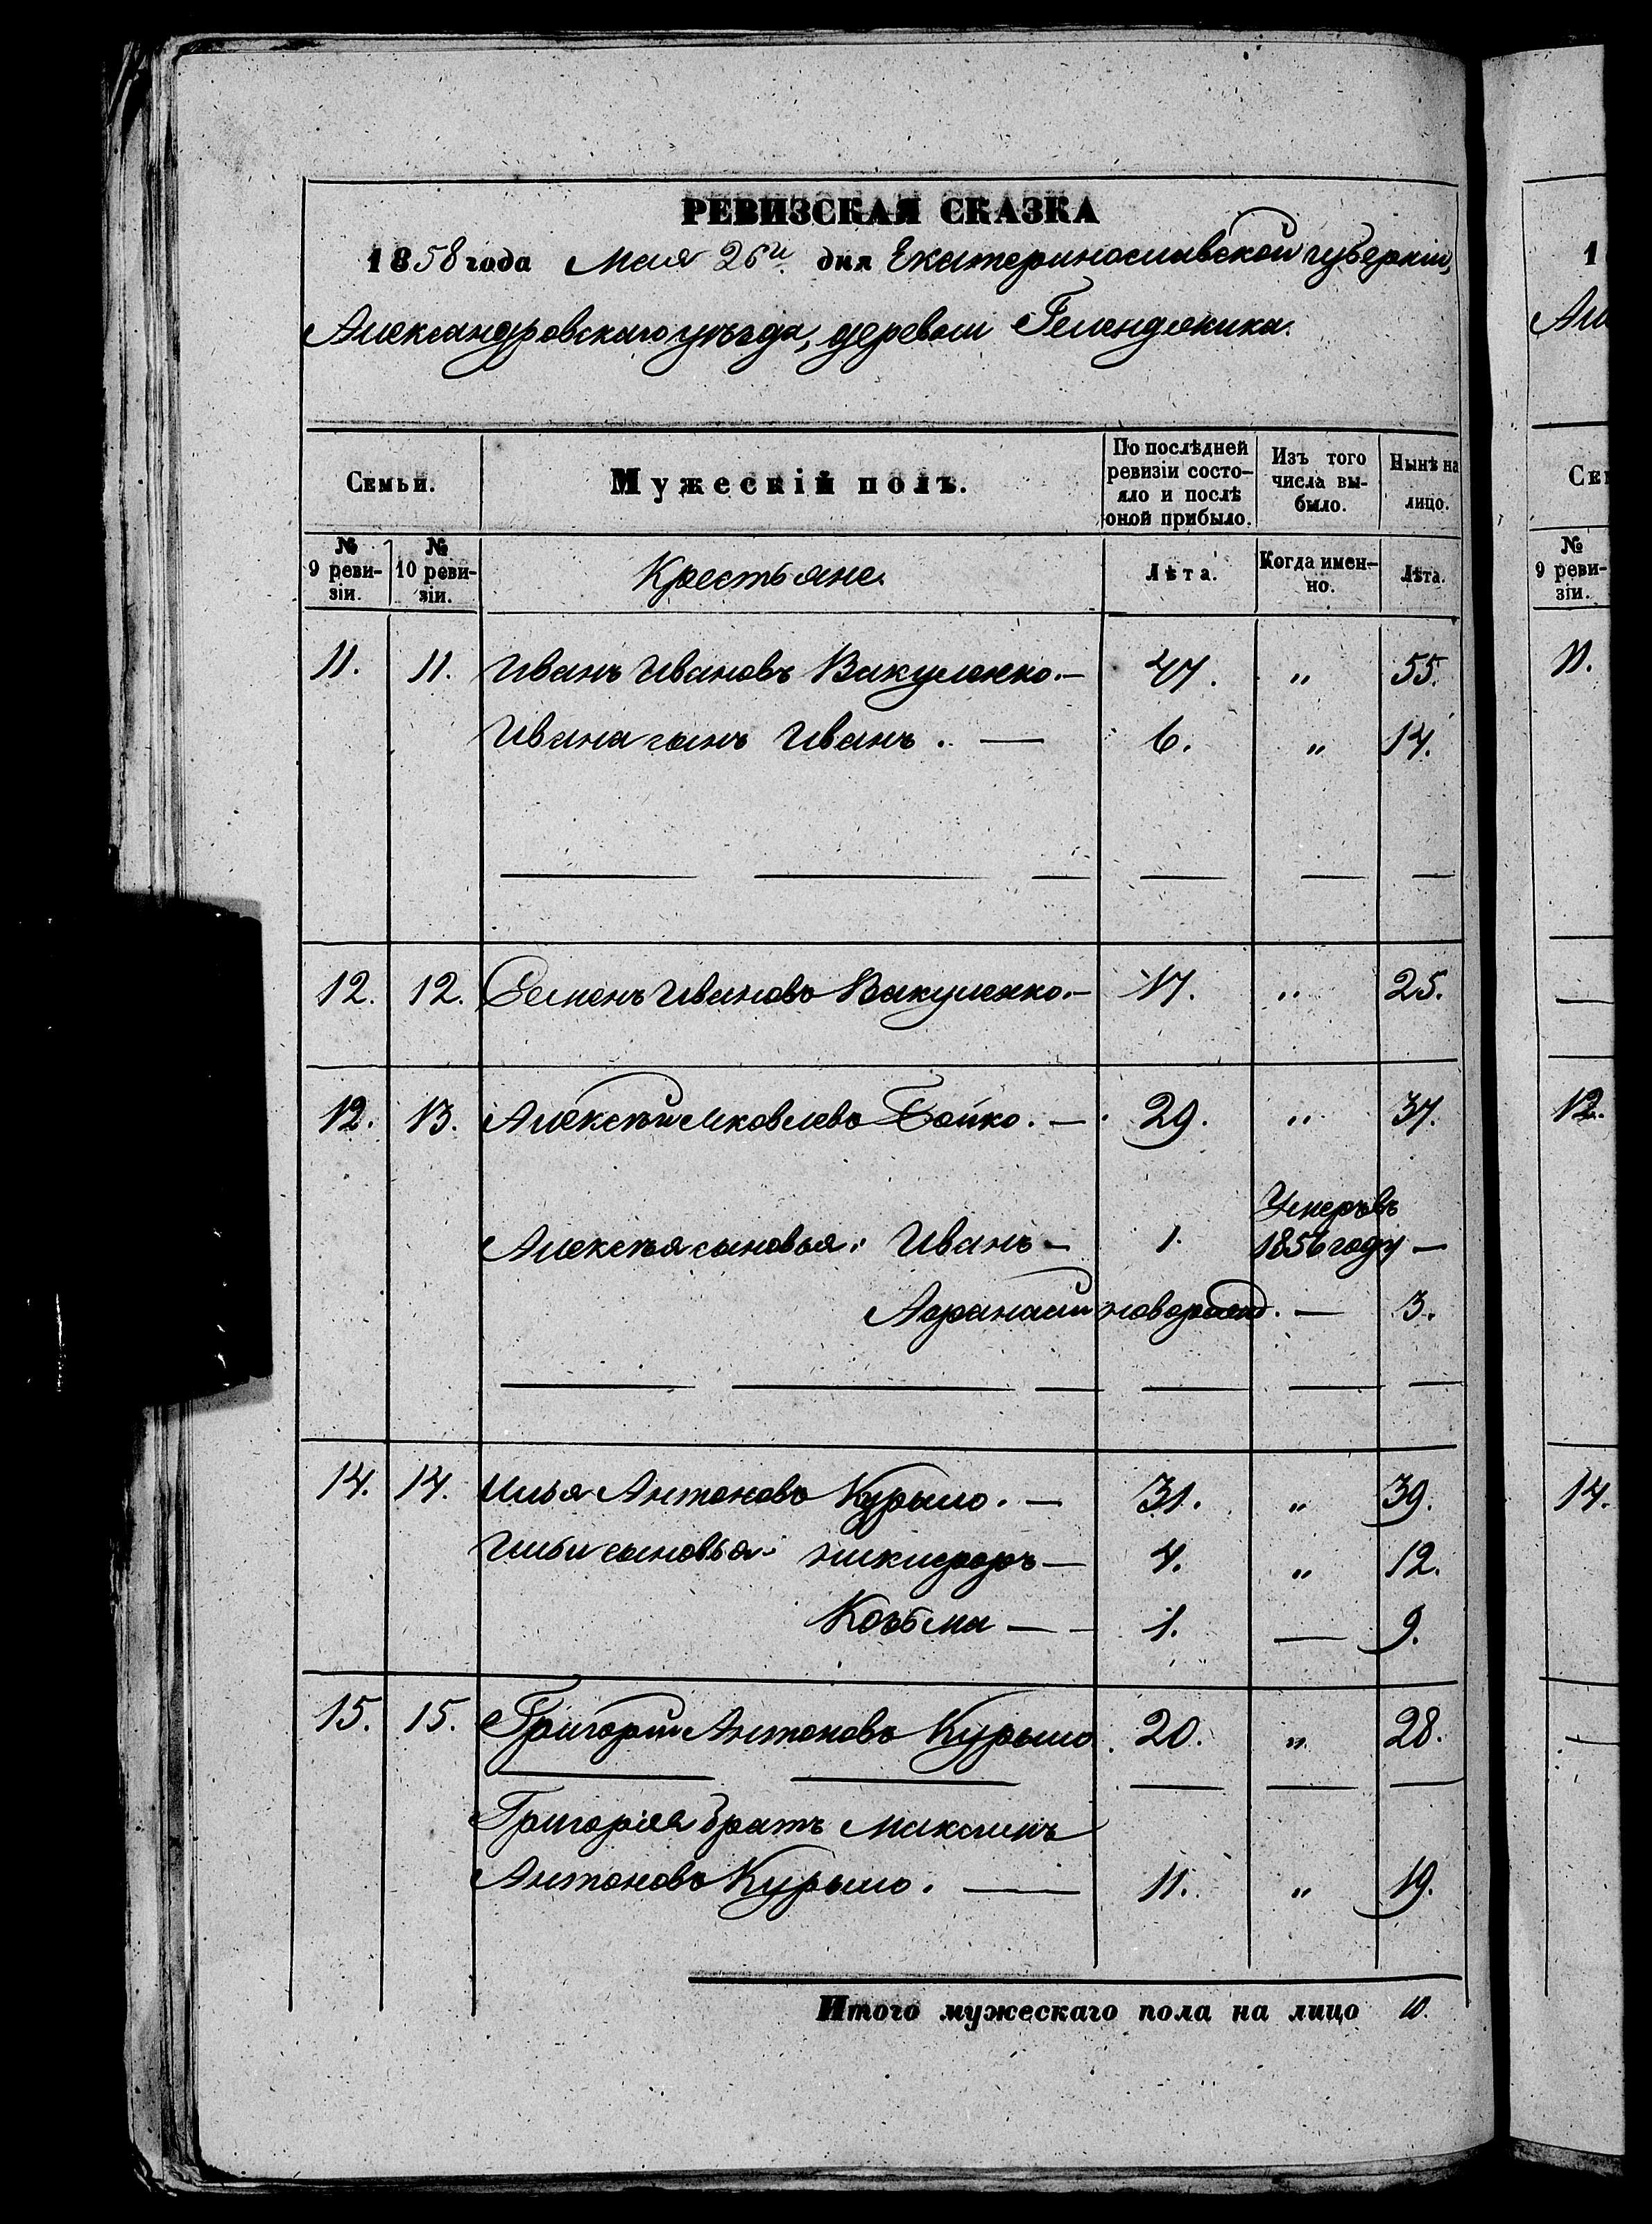 РЕВИЗСКАЯ СКАЗКА
1858 года Мая 26го дня Екатеринославской губерніи,
Александровскаго уѣзда, деревни Гелендяника.
Семьи. Мужескій полъ. По послѣдней ревизіи состояло и послѣ оной прибыло. Изъ того числа выбыло. Нынѣ на лицо.
№ 9 ревизіи. № 10 ревизіи. Крестьяне. Лѣта. Когда именно. Лѣта.
11. 11. Иванъ Ивановъ Вакуленко.— 47. " 55.
Ивана сынъ Иванъ. — 6. " 14.
12. 12. Семенъ Ивановъ Вакуленко.— 17. " 25.
12. 13. Алексѣй Яковлевъ Бойко. — 29. " 37.
Алексѣя сыновья: Иванъ — 1. Умеръ въ 1856 году —
Афанасій новорожд. — 3.
14. 14. Илья Антоновъ Курыло. — 31. " 39.
Ильи сыновья: Никифоръ — 4. " 12.
Козьма — 1. — 9.
15. 15. Григорій Антоновъ Курыло. 20. " 28.
Григорія братъ Максимъ
Антоновъ Курыло. — 11. " 19.
Итого мужескаго пола на лицо 10.
1
Але
Сем
№
9 реви-
зіи.
11.
12.
14.